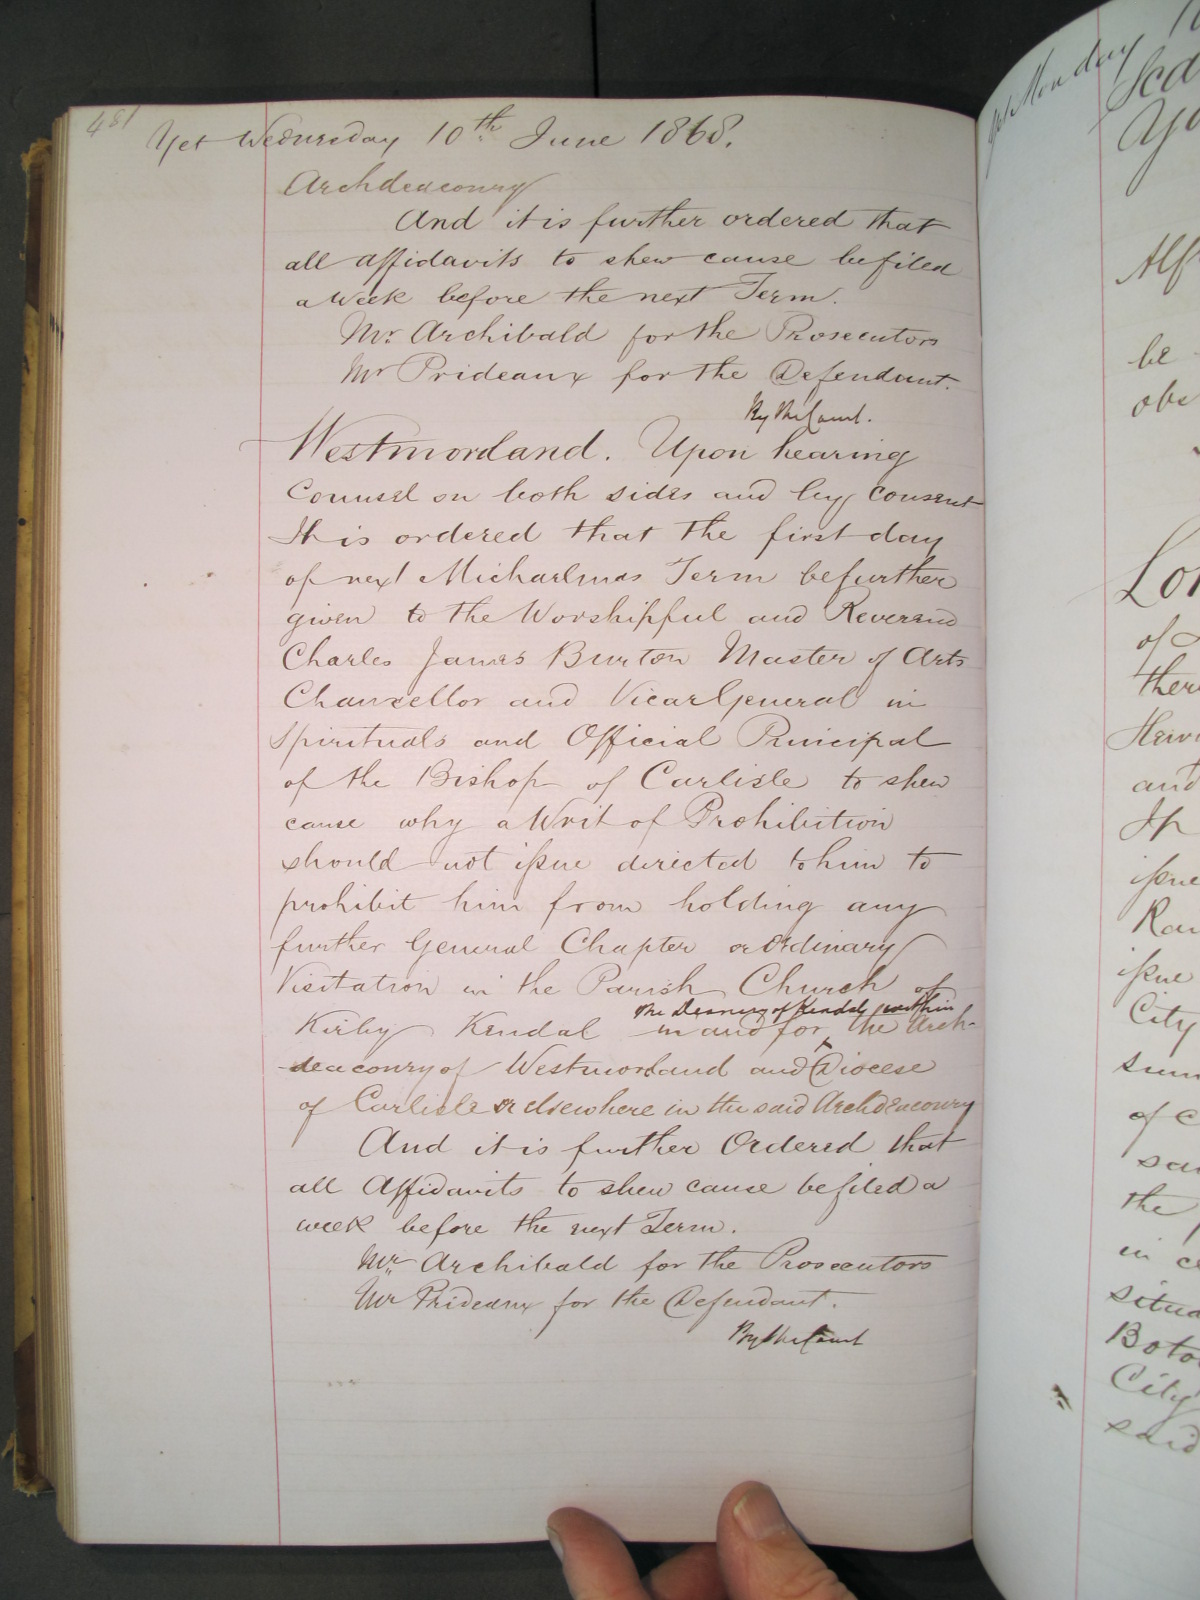 481
Yet Wednesday 10th June 1868.
Archdeaconry
And it is further ordered that
all affidavits to shew cause be filed
a Week before the next Term.
Mr. Archibald for the Prosecutors
Mr Prideaux for the Defendant.
By the Court.
Westmorland. Upon hearing
Counsel on both sides and by consent
It is ordered that the first day
of next Michaelmas Term be further
given to the Worshipful and Reverend
Charles James Burton Master of Arts
Chancellor and Vicar General in
Spirituals and Official Principal
of the Bishop of Carlisle to shew
cause why a Writ of Prohibition
should not issue directed to him to
prohibit him from holding any
further General Chapter or Ordinary
Visitation in the Parish Church of
the Deanery of Kendal within
Kirby Kendal in and for the Arch-
deaconry of Westmorland and Diocese
of Carlisle or elsewhere in the said Archdeaconry
And it is further Ordered that
all Affidavits to shew cause be filed a
week before the next Term.
Mr. Archibald for the Prosecutors
Mr Prideaux for the Defendant.
By the Court
yet Monday
be
obs
Lon
of
ther
and
issue
issue
City
of
the
in
situa
City
said